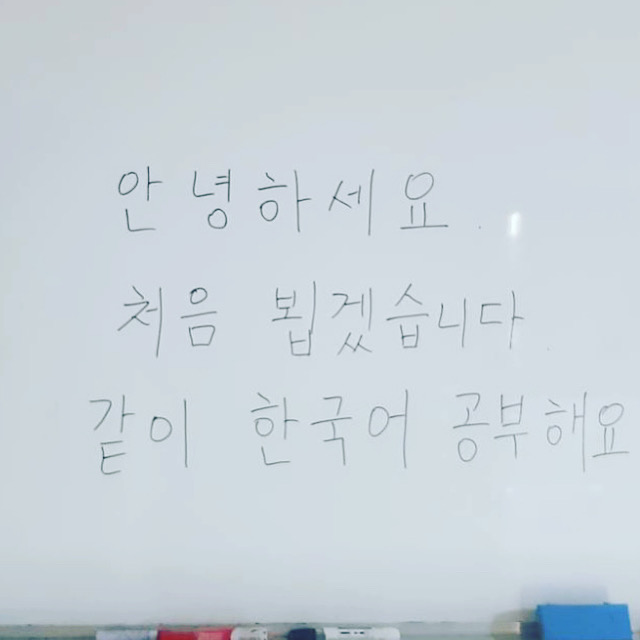 안녕하세요.
처음 뵙겠습니다.
같이 한국어 공부해요